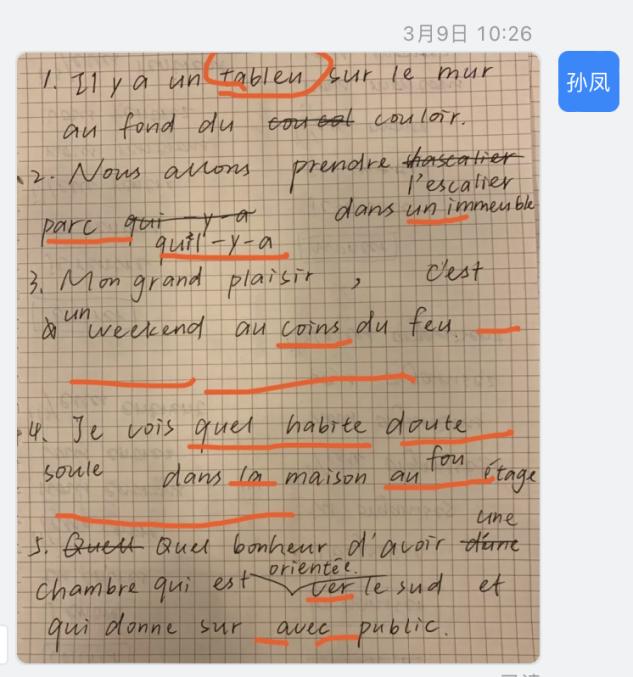 3月9日 10:26
孙凤
1. Il y a un tableu sur le mur
au fond du couloir.
2. Nous allons prendre l'escalier
parc qu'il-y-a dans un immeuble
3. Mon grand plaisir, c'est
à un weekend au coins du feu
4. Je vois quel habite doute
soule dans la maison au fou étage
5. Quel bonheur d'avoir une
chambre qui est orientée ver le sud et
qui donne sur avec public.